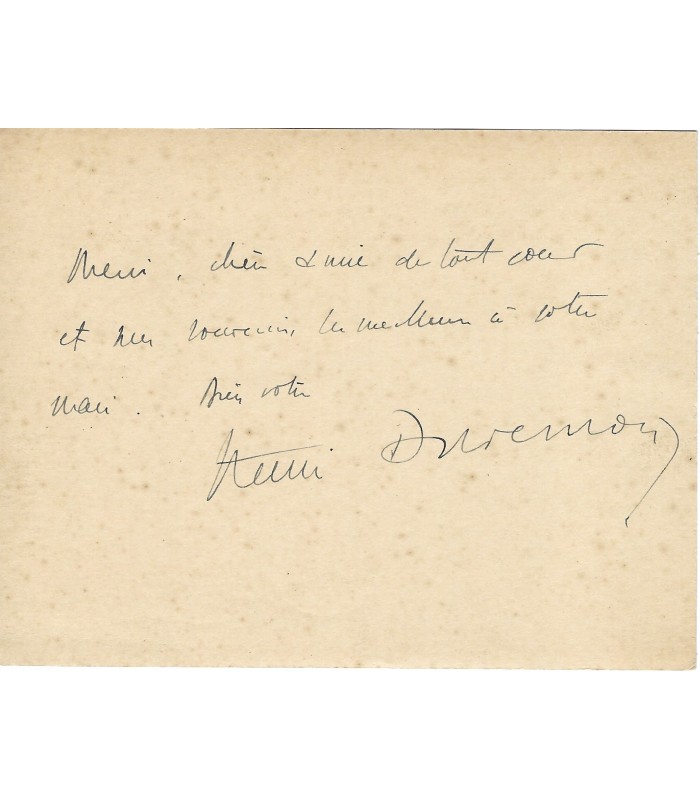 Merci, chère amie de tout cœur
et mes souvenirs les meilleurs à votre
mari. Bien votre
Henri